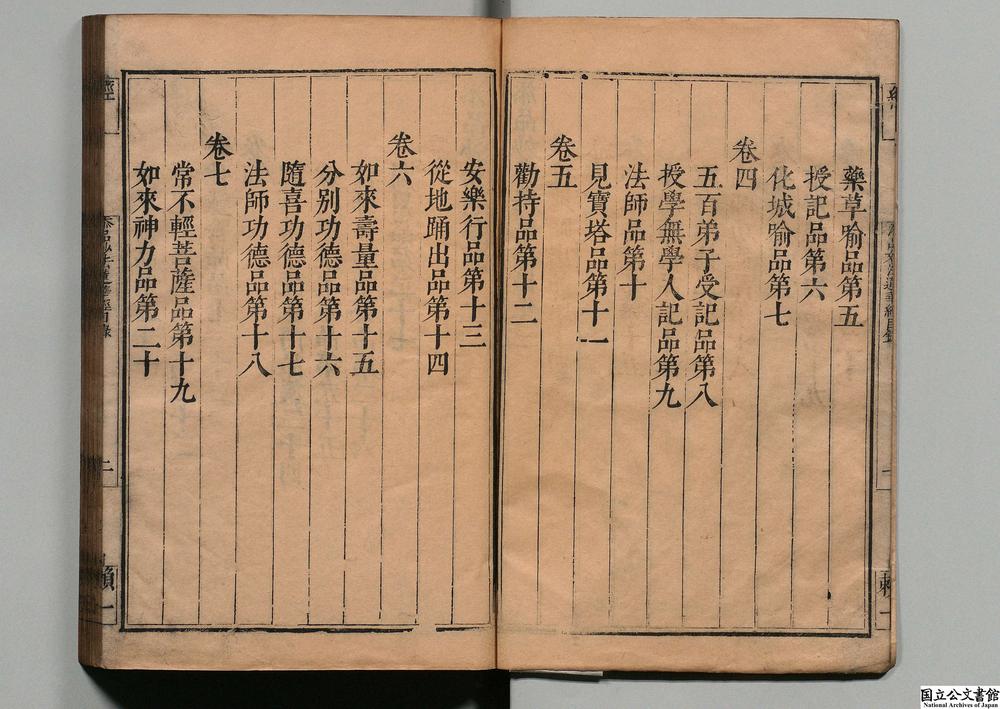 藥草喻品第五
授記品第六
化城喻品第七
卷四
五百弟子受記品第八
授學無學人記品第九
法師品第十
見寶塔品第十一
卷五
勸持品第十二
安樂行品第十三
從地踊出品第十四
卷六
如來壽量品第十五
分別功德品第十六
隨喜功德品第十七
法師功德品第十八
卷七
常不輕菩薩品第十九
如來神力品第二十
二
國立公文書館
National Archives of Japan